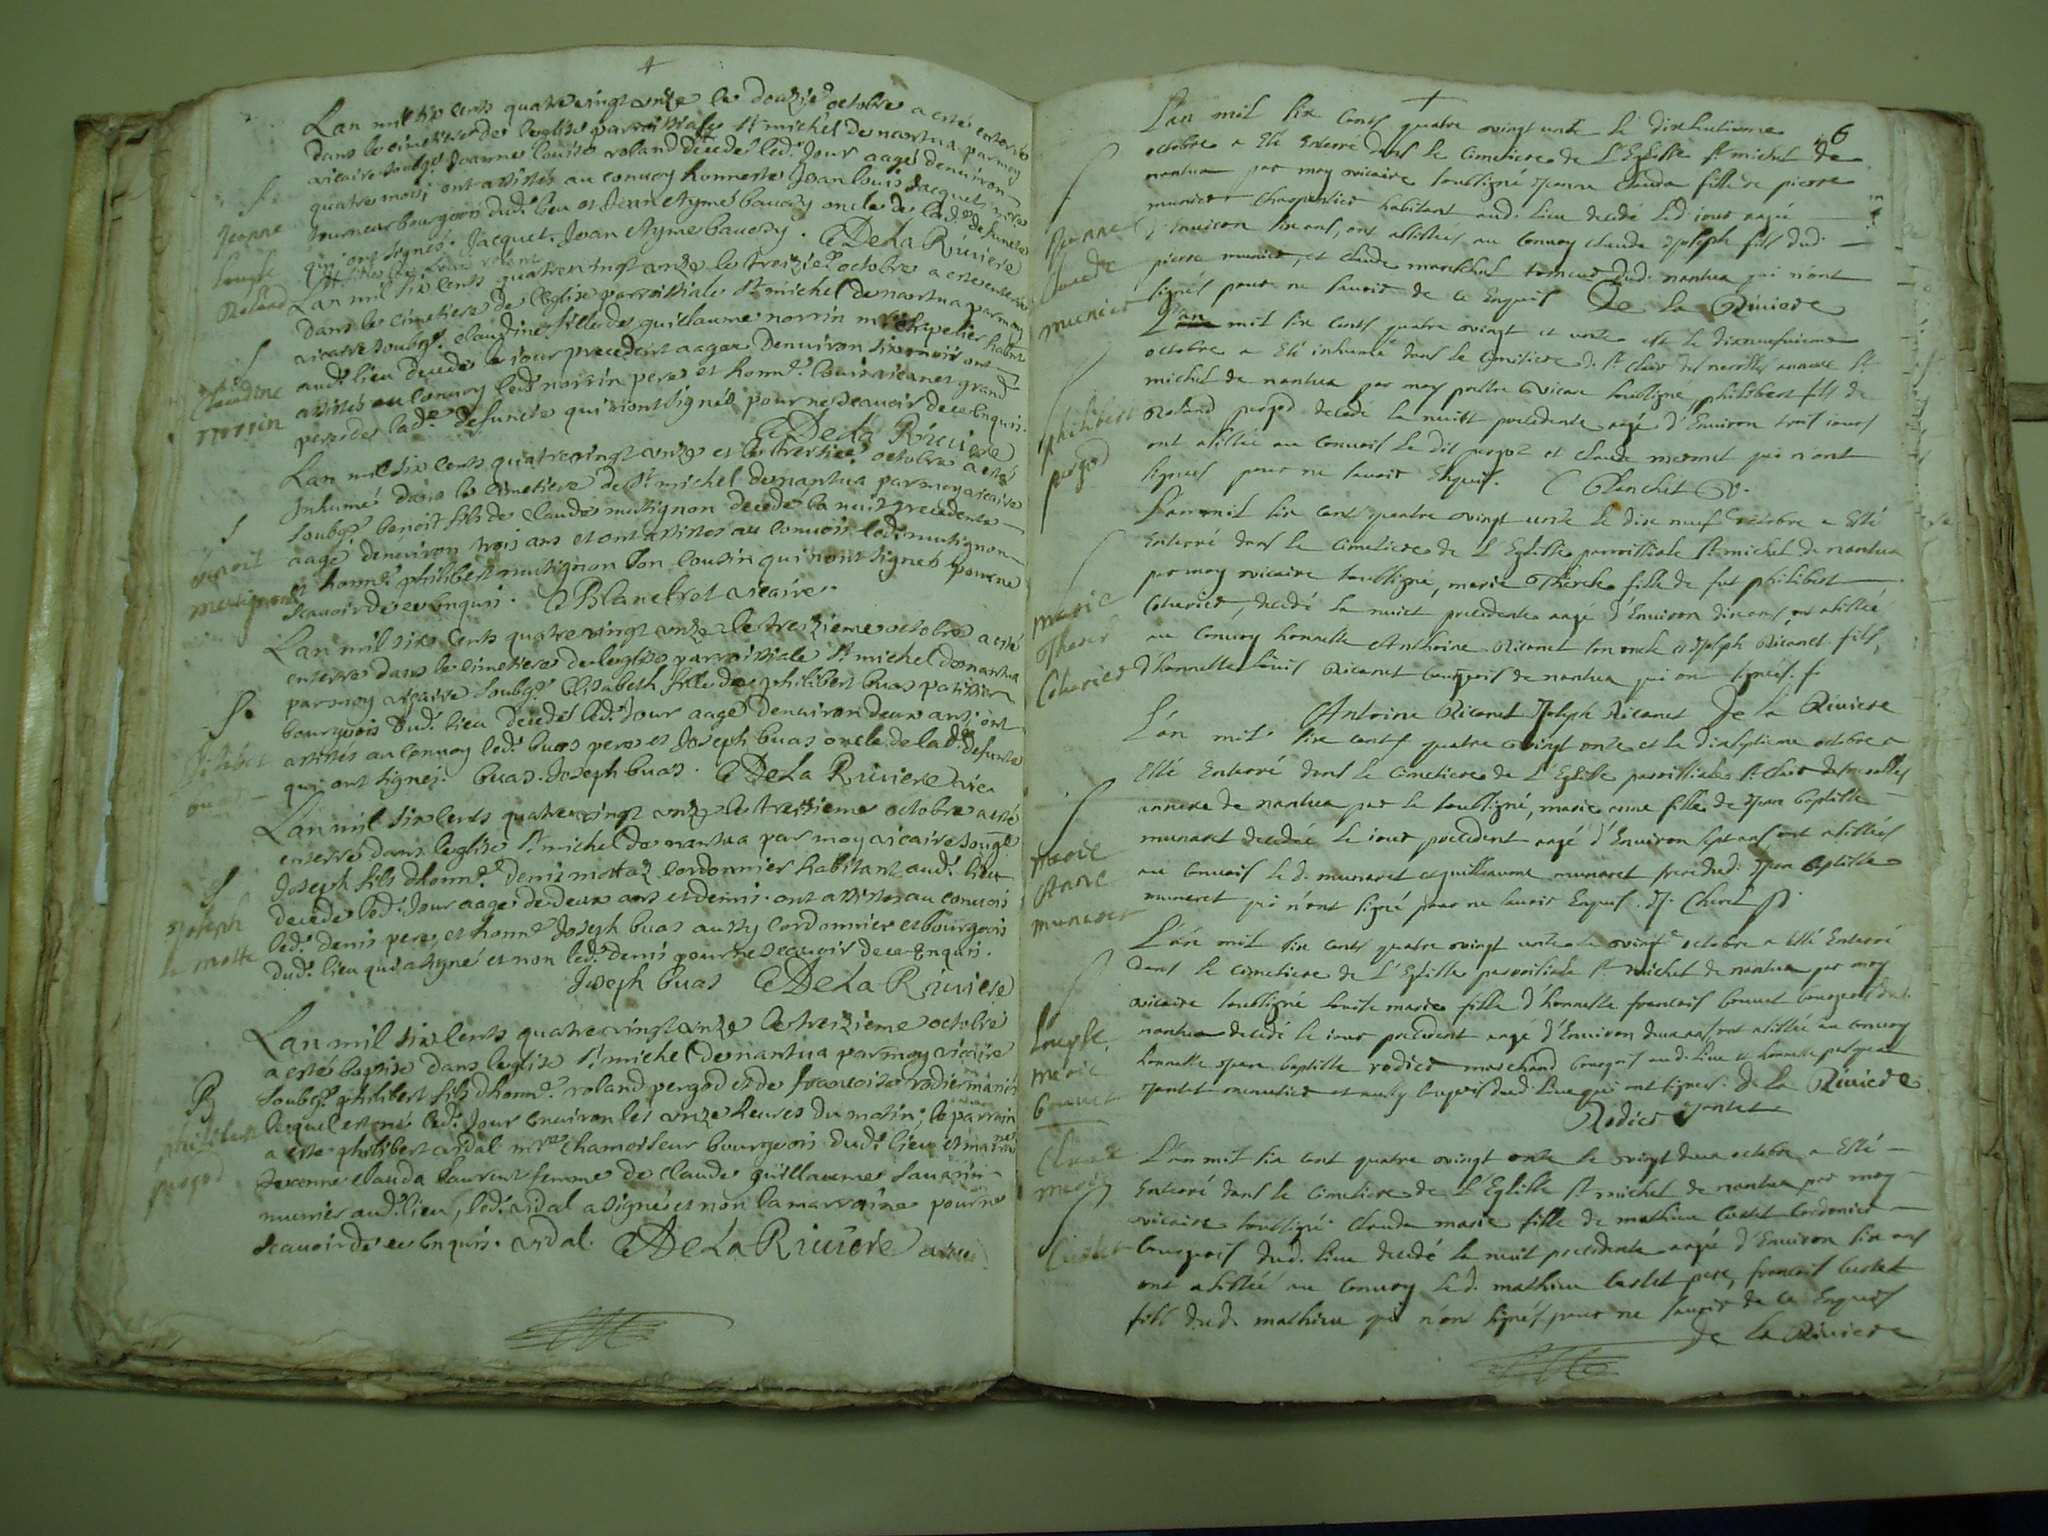 Lan mil six cents quatre vingt unze le douzie octobre a esté enterré
dans le cimetiere de leglise parroissiale St michel de nantua par moy
vicaire soubgé Jeanne louise roland decedée led. Jour aagé denuiron
quatre mois; ont assistés au conuoy honneste Jean louis Jacquet mre
tourneur bourgeois dud. lieu et Jean Aymé baudry oncle de lad. defuncte
qui ont signés. Jacquet. Jean Ayme baudry. DeLa Riuiere
Jeanne
Louyse
Roland
Lan mil six cents quatre vingt unze le treizie octobre a esté enterré
dans le cimetiere de leglise parroissiale St michel de nantua par moy
vicaire soubgé claudine fille de guillaume norrin mre chapelier habitant
aud. lieu decedée le jour precedent aagée denuiron six mois ont
assistés au conuoy led. norrin pere et honn. louis ricanet grand
pere de lad. defuncte qui n'ont signés pour ne scauoir de ce enquis.
DeLa Riuiere
Claudine
norrin
Lan mil six cents quatre vingt unze et le treizie octobre a esté
Inhumé dans le cimetiere de St michel de nantua par moy vicaire
soubgé benoit fils de Claude mutignon decedé la nuit precedente
aagé denuiron trois ans et ont assistés au conuois led. mutignon
et honn. philibert mutignon son cousin qui n'ont signés pour ne
scauoir de ce enquis. Blanchet vicaire.
benoit
mutignon
Lan mil six cents quatre vingt unze le treizieme octobre a esté
enterré dans le cimetiere de leglise parroissiale St michel de nantua
par moy vicaire soubgé Elisabeth fille de philibert buas patissier
bourgeois dud. lieu decedée led. Jour aagé denuiron deux ans; ont
assistés au conuoy led. buas pere et Joseph buas oncle de lad. defuncte
qui ont signés. buas. Joseph buas. DeLa Riuiere vica
Lan mil six cents quatre vingt unze le treizieme octobre a esté
enterré dans leglise St michel de nantua par moy vicaire sougé
Joseph fils dhonn. denis mottaz cordonnier habitant aud. lieu
decedé led. Jour aagé de deux ans et demi. ont assistés au conuois
led. denis pere et honn. Joseph buas aussy cordonnier et bourgeois
dud. lieu qui a signé et non led. denis pour ne scauoir de ce Enquis.
Joseph buas DeLa Riuiere
Joseph
la motte
Lan mil six cents quatre vingt unze le treizieme octobre
a esté baptisé dans leglise St michel de nantua par moy vicaire
soubgé philibert fils dhonn. roland pergod et de francoise rodier mariés
lequel est né led. Jour enuiron les unze heures du matin; le parrain
a esté philibert vidal mre chamoiseur bourgeois dud. lieu et marraine
Jeanne clauda laurent femme de claude guillaume sauarin
munier aud. lieu, led. vidal a signé et non la marraine pour ne
scauoir de ce enquis. vidal. DeLa Riuiere vicaire
B
philibert
pergod
6
L'an mil six cents quatre vingt unze le dixhuitieme
octobre a Eté Enterré dans le cimetiere de L'Eglise St michel de
nantua par moy vicaire soussigné Jeanne Clauda fille de pierre
munier charpentier habitant aud. lieu decedé led. iour aagée
d'Enuiron six ans, ont assistés au conuoy claude Joseph fils dud.
pierre munier, et claude mareschal dud. nantua qui n'ont
signés pour ne sauoir de ce Enquis De la Riuiere
Jeanne
Claude
munier
L'an mil six cents quatre vingt et unze et le dixneufuieme
octobre a Eté inhumé dans le cimitiere de St Clair des nerolles annexe St
michel de nantua par moy prestre vicaire soussigné, philibert fils de
Roland pergod decedé la nuitt precedente aagé d'Enuiron trois iours
ont assistée au conuois le dit pergod et claude mermet qui n'ont
signés pour ne sauoir Enquis. Blanchet V.
philibert
pergod
L'an mil six cent quatre vingt unze le dix neuf octobre a Esté
Enterré dans le cimetiere de L'Eglise parroissiale St michel de nantua
par moy vicaire soussigné, marie Therese fille de fut philibert
Couerier, decedé la nuict precedente aagé d'Enuiron dix ans, ont assistée
au conuoy honneste Anthoine Ricanet son oncle et Joseph Ricanet fils,
d'honneste Louis Ricanet bourgeois de nantua qui ont signés.
Antoine Ricanet Joseph Ricanet De la Riuiere
marie
Therese
Couerier
L'an mil six cents quatre vingt onze et le dixseptieme octobre a
Esté Enterré dans le cimetiere de L'Eglise parroissiale St Clair des nerolles
annexe de nantua par le soussigné, marie anne fille de Jean baptiste
munaret decedée le iour precedent aagé d'Enuiron sept ans ont assistés
au conuois le d. munaret et guilliaume munaret frere dud. Jean baptiste
munaret qui n'ont signé pour ne sauoir Enquis.
marie
Anne
munaret
L'an mil six cents quatre vingt unze le vingt octobre a Esté Enterré
dans le cimetiere de L'Eglise parroissiale St michel de nantua par moy
vicaire soussigné Louise marie fille d'honneste francois bonnet bourgeois dud.
nantua decedé le iour precedent aagé d'Enuiron deux ans, ont assistée au conuoy
honneste Jean baptiste rodier marchand bourgeois aud. lieu et honneste
Jantet menuisier et aussy bourgeois dud. lieu qui ont signés. De la Riuiere
Rodier Jantet
Louyse
marie
bonnet
L'an mil six cent quatre vingt onze le vingt deux octobre a Esté
Enterré dans le cimetiere de L'Eglise St michel de nantua par moy
vicaire soussigné Clauda marie fille de mathieu cudet Cordonier
bourgeois dud. lieu decedé la nuit precedente aagé d'Enuiron six ans
ont assistée au conuoy le d. mathieu cudet pere, francois cudet
fils dud. mathieu qui n'ont signés pour ne sauoir de ce Enquis
De la Riuiere